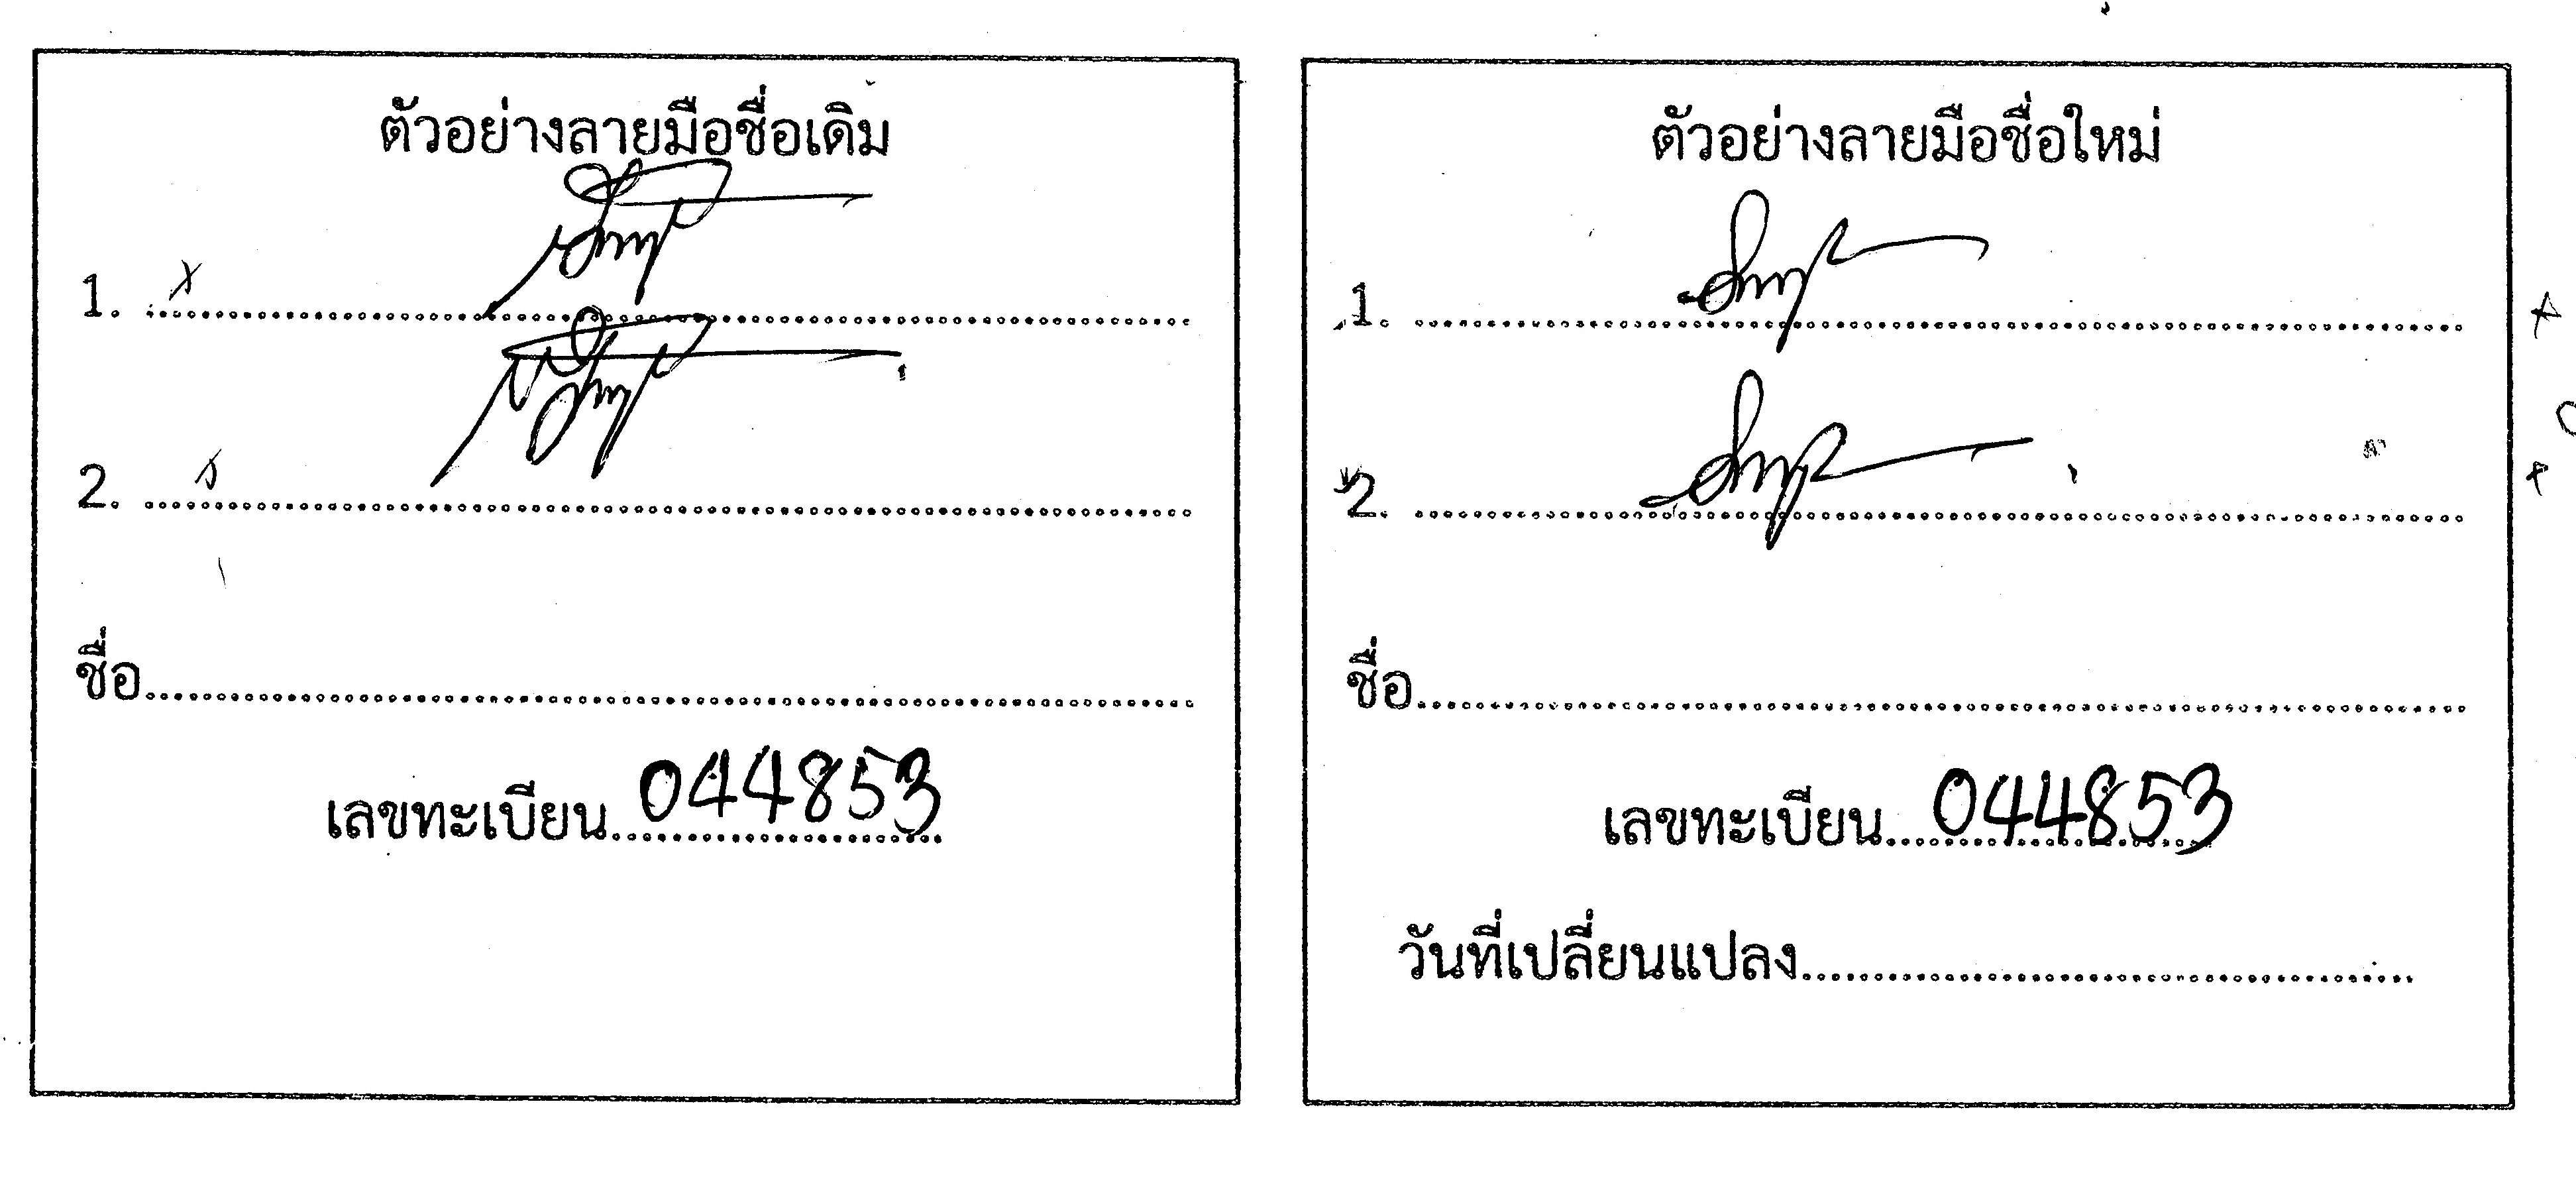 ตัวอย่างลายมือชื่อเดิม
1. x
2.
ชื่อ
เลขทะเบียน 044853
ตัวอย่างลายมือชื่อใหม่
1.
2.
ชื่อ
เลขทะเบียน 044853
วันที่เปลี่ยนแปลง